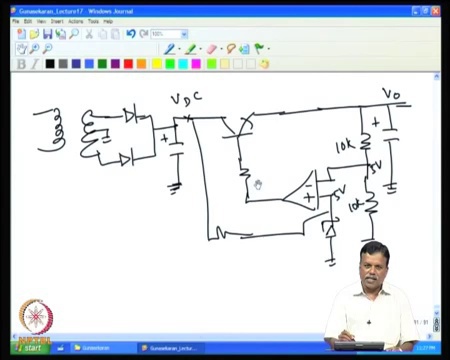 Gunasekaran_Lecture17 - Windows Journal
File Edit View Insert Actions Tools Help
100%
B I
VDC
VO
+
+
10k
5V
-
+
5V
10k
NPTEL
start
Gunasekaran
Gunasekaran_Lectu...